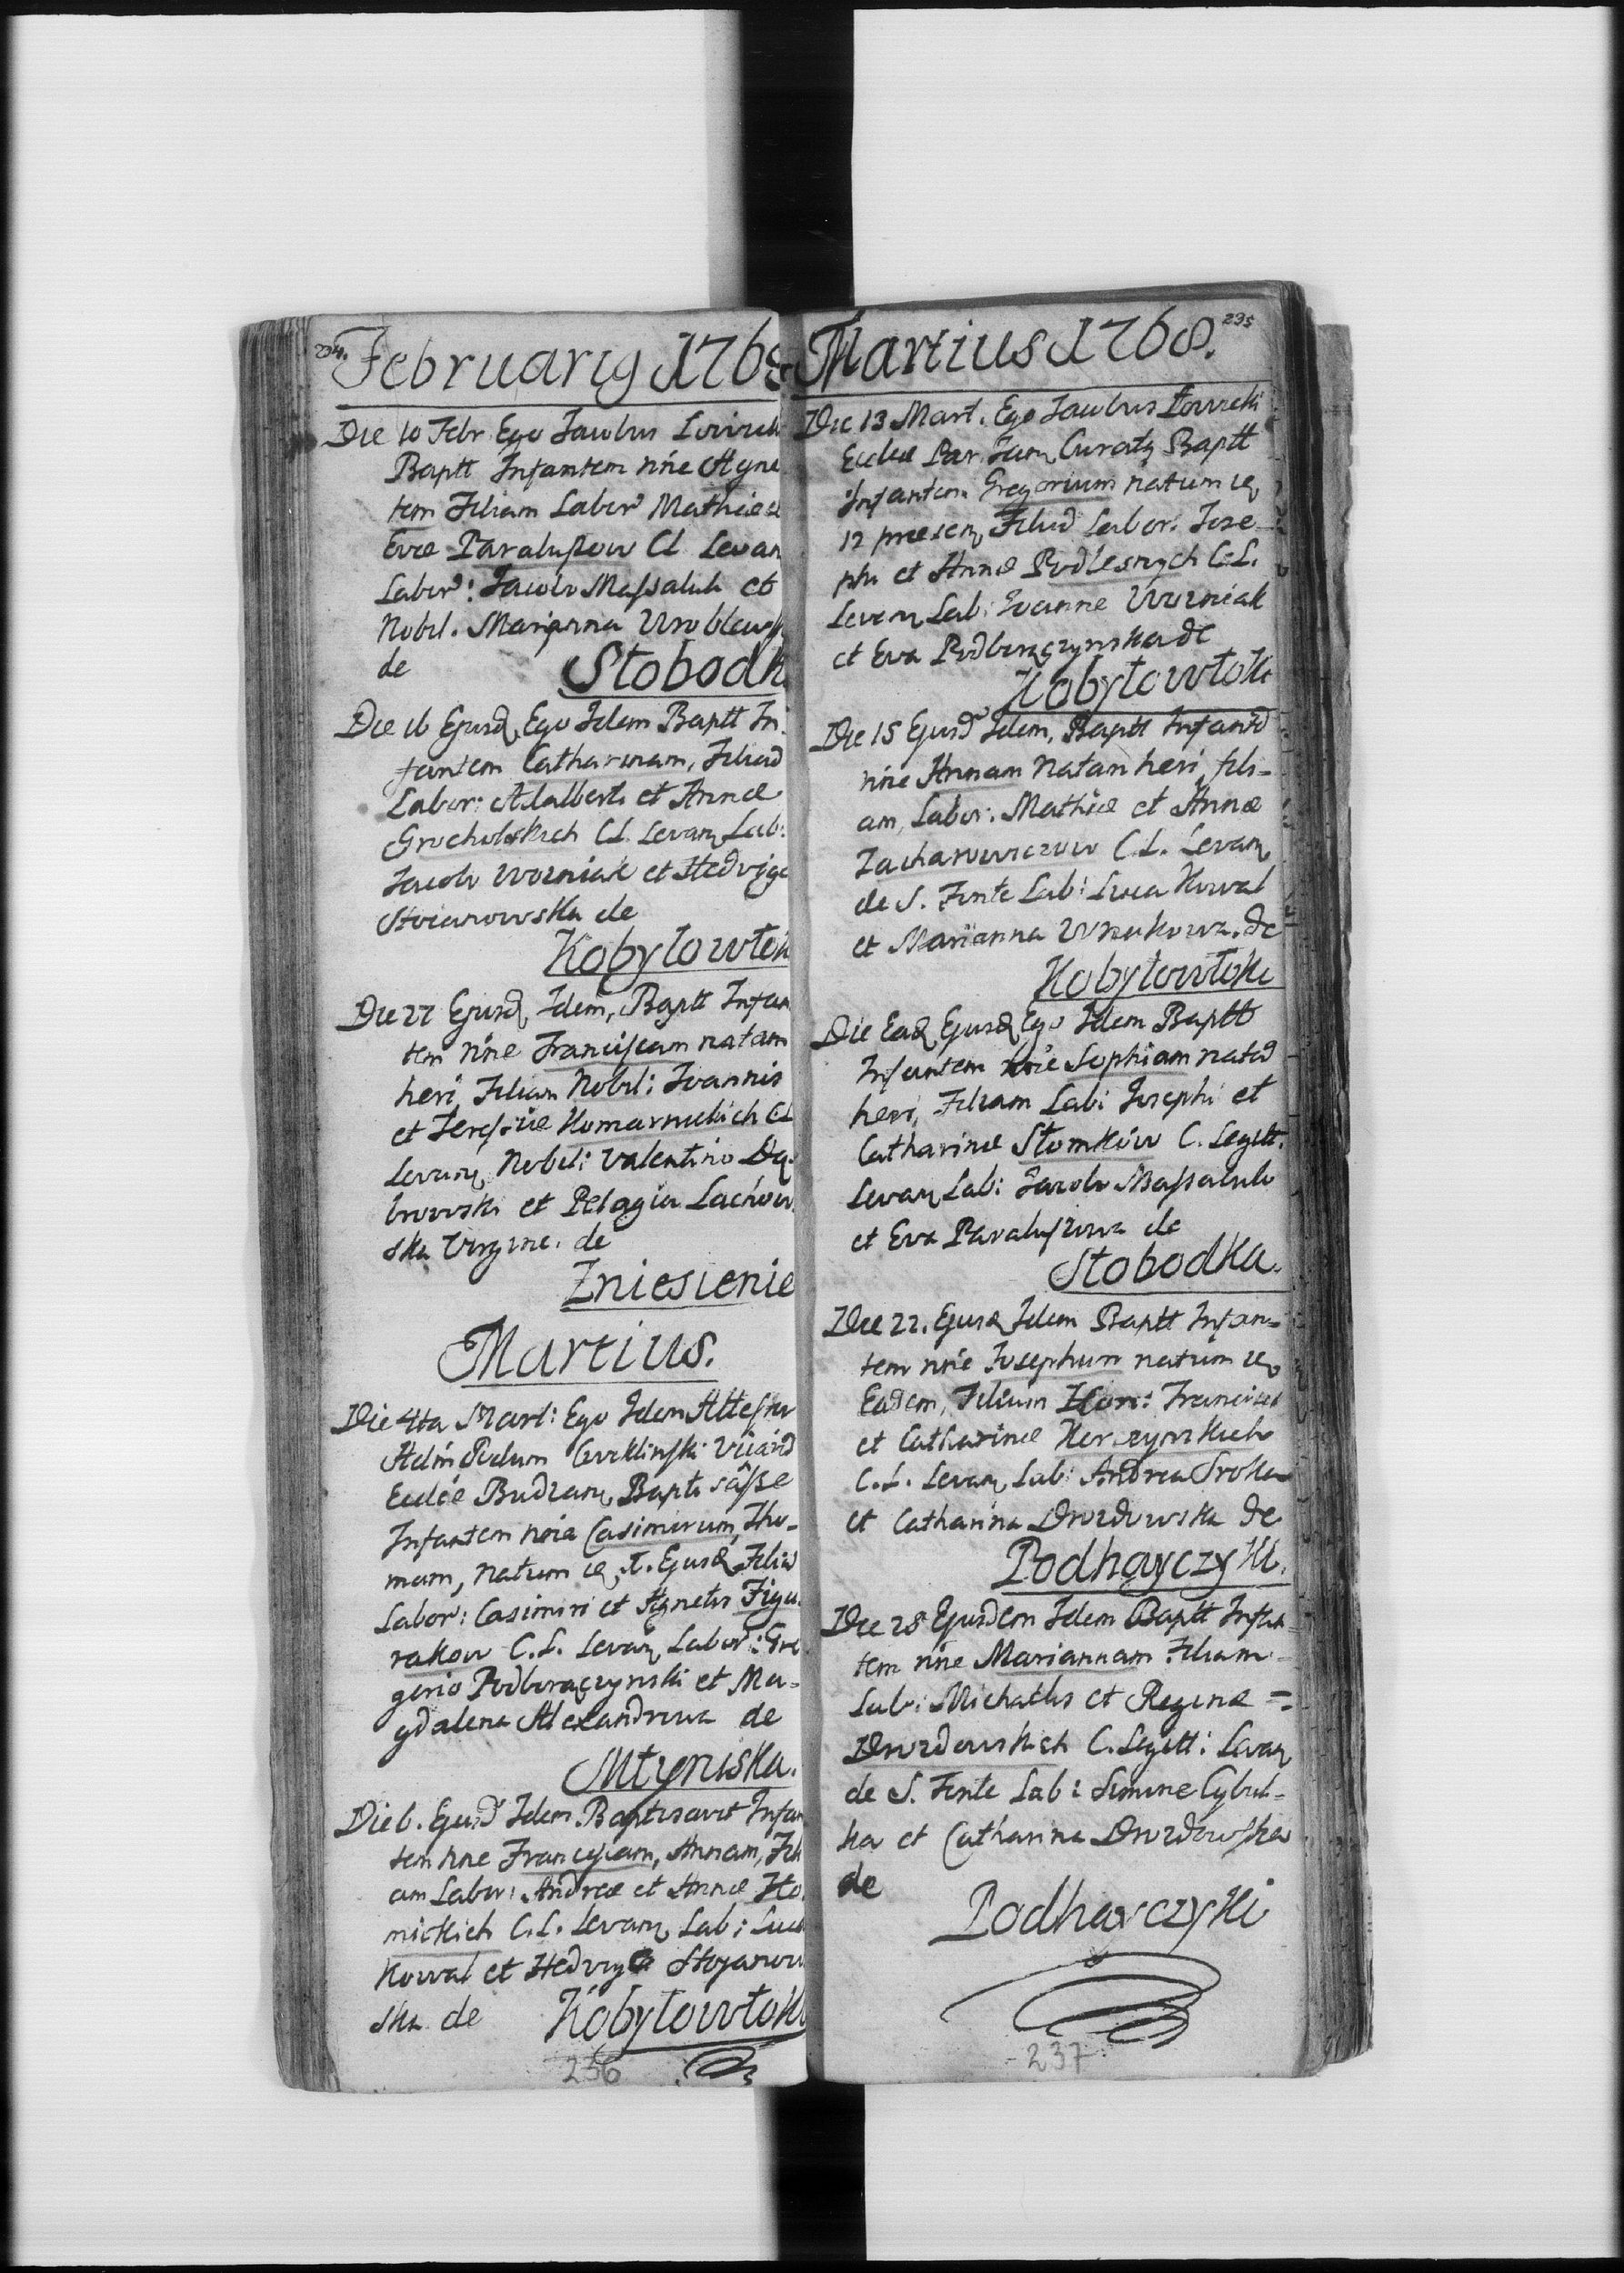 234.
Februarig 1768
Die 10 Febr Ego Jacobus Lowick
Baptt Infantem nne Agne
tem Filiam Labor Mathiæ et
Evæ Paraluszow CL Levan
Labor: Jacobo Massaluk et
Nobil. Marianna Wroblews
de
Słobodk
Die 16 Ejusd Ego Idem Baptt In
fantem Catharinam, Filiad
Labor: Adalberti et Annæ
Grocholskich CL Levanq Lab:
Jacobo Wozniak et Hedvige
Stoianowska de
Kobyłowłok
Die 27 Ejusd Idem, Baptt Infan
tem nne Franciscam natam
heri, Filiam Nobil: Joannis
et Teressiæ Komarnickich CL
Levanq Nobil: Valentino Dą
browski et Pelagia Lachow
ska Virgine. de
Zniesienie
Martius.
Die 4ta Mart: Ego Idem Attestor
Adm Rdum Vicarid
Ecclæ Budzanq Bapti
Infantem nne Casimirum, Tho-
mam, natum
Labor: Casimiri et Agnetis Figu
rakow C.L. Levanq Labor: Gre
gorio Podboraczynski et Ma-
gdalena Alexandrowa de
Młyniska.
Die 6. Ejusd Idem Baptisavit Infan
tem nne Franciscam, Annam, Fili
am Labor: Andreæ et Annæ Ho
mickich C.L. Levanq Lab: Luca
Kowal et Hedvige Stojanow
ska de Kobyłowłoki
236
235
Martius 1768.
Die 13 Mart. Ego Jacobus Lowicki
Eccliæ Par Jan Curatq Baptt
Infantem Gregorium natum
12 præsen Filiud Labor. Jose
phi et Annæ Podlesnych C.L.
Levanq Lab: Joanne Wozniak
et Eva Podboraczynska de
Kobyłowłoki
Die 15 Ejusd Idem, Baptt Infantd
nne Annam Natam heri, fili-
am, Labor: Mathiæ et Annæ
Zacharowiczow C.L. Levanq
de S. Fonte Lab: Luca Kowal
et Marianna Wnukowa. de
Kobyłowłoki
Die Ead Ejusd Ego Idem Baptt
Infantem nne Sophiam natad
heri, Filiam Lab: Josephi et
Catharinæ Słomkow C. Legitt.
Levanq Lab: Jacobo Massaluk
et Eva Paraluszowa de
Słobodka.
Die 22. Ejusd Idem Baptt Infan-
tem nne Josephum natum
Eadem, Filium Hon: Francisci
et Catharinæ Kerczynskich
C.L. Levanq Lab: Andrea Sroka
et Catharina Drozdowska de
Podhayczyki.
Die 28 Ejusdem Idem Baptt Infan-
tem nne Mariannam Filiam
Lab: Michaelis et Reginæ =
Drozdowskich C. Legitt: Levanq
de S. Fonte Lab: Simone Cybul-
ka et Catharina Drozdowska
de
Podhayczyki
237